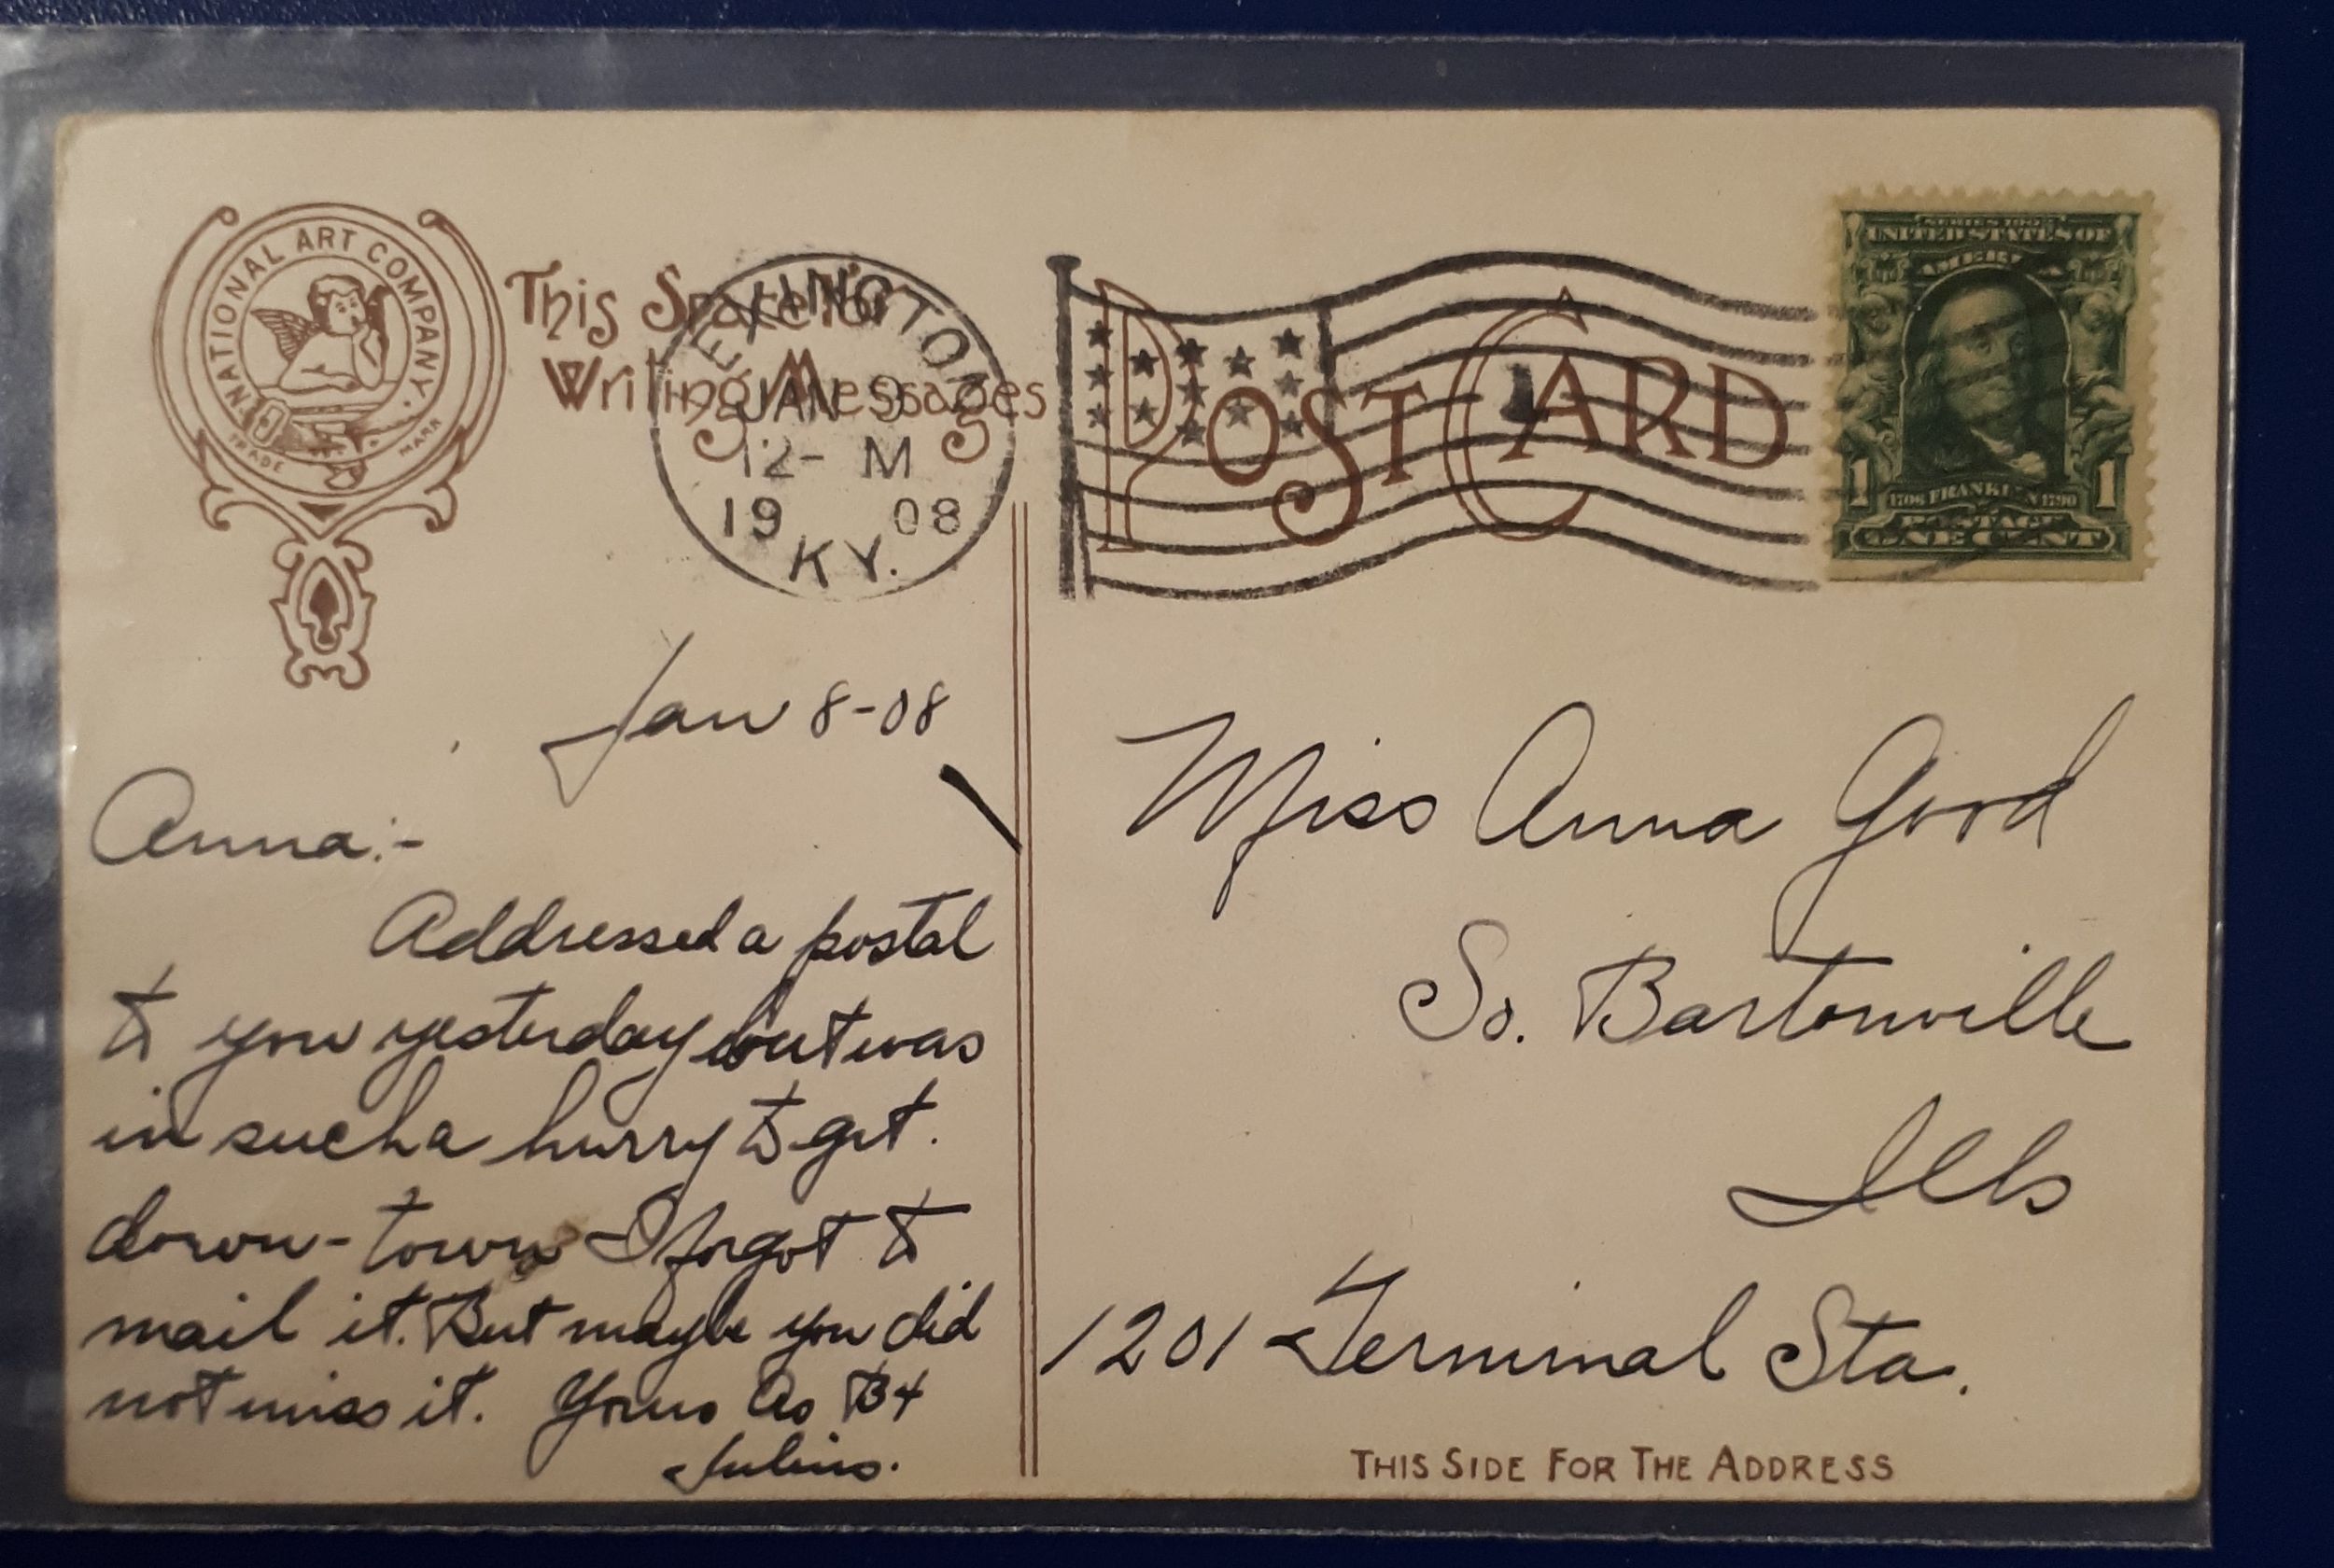 NATIONAL ART COMPANY.
TRADE MARK
This Space for
Writing Messages
LEXINGTON
JAN 9
12- M
19 08
KY.
POST CARD
SERIES 1902
UNITED STATES OF
AMERICA
1 1706 FRANKLIN 1790 1
POSTAGE
ONE CENT
Jan 8-08
Anna:-
Addressed a postal
to you yesterday but was
in such a hurry to get
down-town I forgot to
mail it. But maybe you did
not miss it. Yours As B4
Julius.
Miss Anna Good
So. Bartonville
Ills
1201 Terminal Sta.
THIS SIDE FOR THE ADDRESS